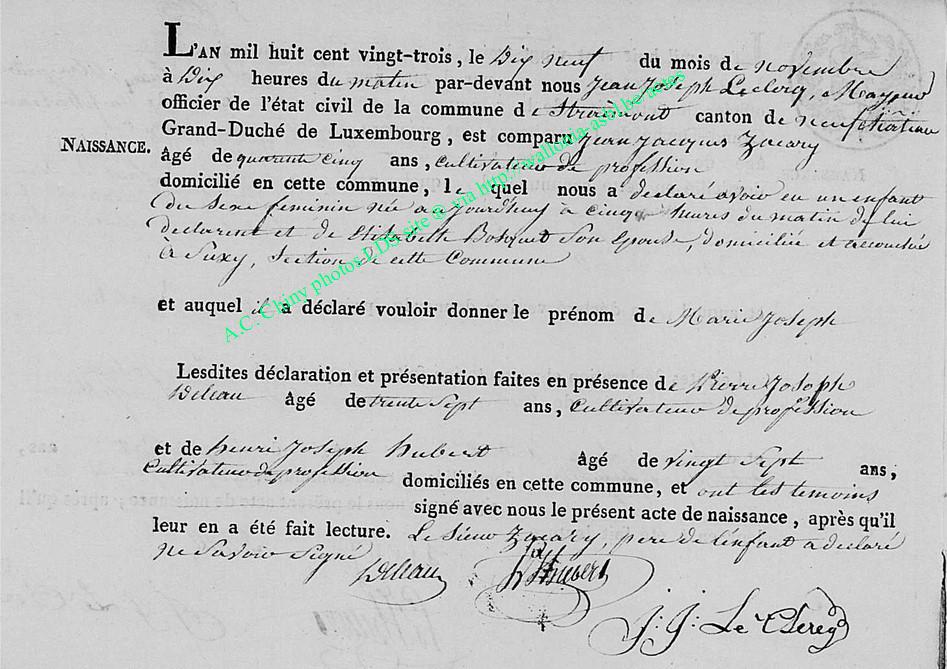 L'AN mil huit cent vingt-trois, le Dix neuf du mois de novembre
à Dix heures du matin par-devant nous Jean Joseph Leclercq, Mayeur
officier de l'état civil de la commune de Straimont canton de neufchateau
Grand-Duché de Luxembourg, est comparu Jean Jacques Zacary
NAISSANCE.
âgé de quarente cinq ans, cultivateur de profession
domicilié en cette commune, le quel nous a declaré avoir eu un enfant
du sexe feminin née aujourdhuy à cinq heures du matin de lui
declarent et de Elisabeth Bosquet son epouse, domiciliée et accouchée
à Suxy, section de cette Commune
et auquel il a déclaré vouloir donner le prénom de Marie Joseph
Lesdites déclaration et présentation faites en présence de Pierre Joseph
Deleau âgé de trente Sept ans, cultivateur de profession
et de henri Joseph hubert âgé de vingt Sept ans,
Cultivateur de profession domiciliés en cette commune, et ont les temoins
signé avec nous le présent acte de naissance, après qu'il
leur en a été fait lecture. Le Sieur Zacary, pere de l'enfant a declaré
ne Savoir Signé
Deleau hJhubert
J: J: Le Clercq
A.C. Chiny photos LDS site @ via http://wallonia-asbl.be/actes